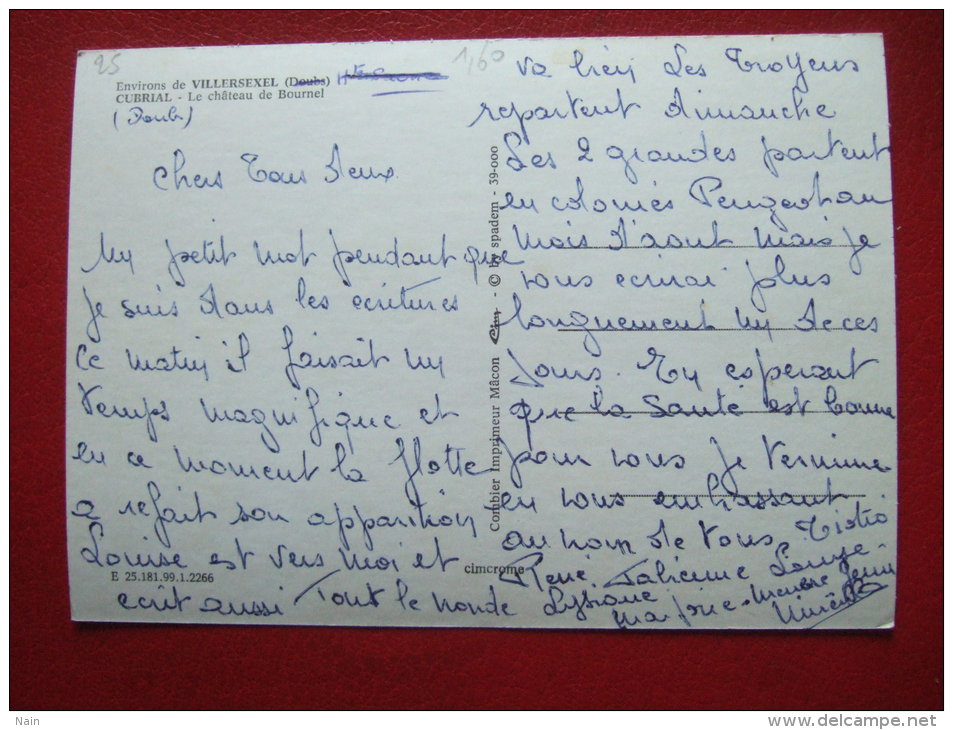 25
1,60
Environs de VILLERSEXEL (Doubs) Hte Saone
CUBRIAL - Le château de Bournel
(Doubs)
Chers Tous Deux
Un petit mot pendant que
je suis dans les ecritures
Ce matin il faisait un
temps magnifique et
en ce moment la flotte
a refait son apparition
Louise est vers moi et
ecrit aussi Tout le monde
va bien Les Troyens
repartent dimanche
Les 2 grandes partent
en colonies Peugeot au
mois d'aout mais je
vous ecrirai plus
longuement un de ces
jours. En esperant
que la Santé est bonne
pour vous je termine
en vous embrassant
au nom de tous. Tistio
René Fabienne Louise
Lysiane
Marie
E 25.181.99.1.2266
cimcrome
Combier Imprimeur Mâcon Cim - © by spadem - 39-000
Nain
http://www.delcampe.net